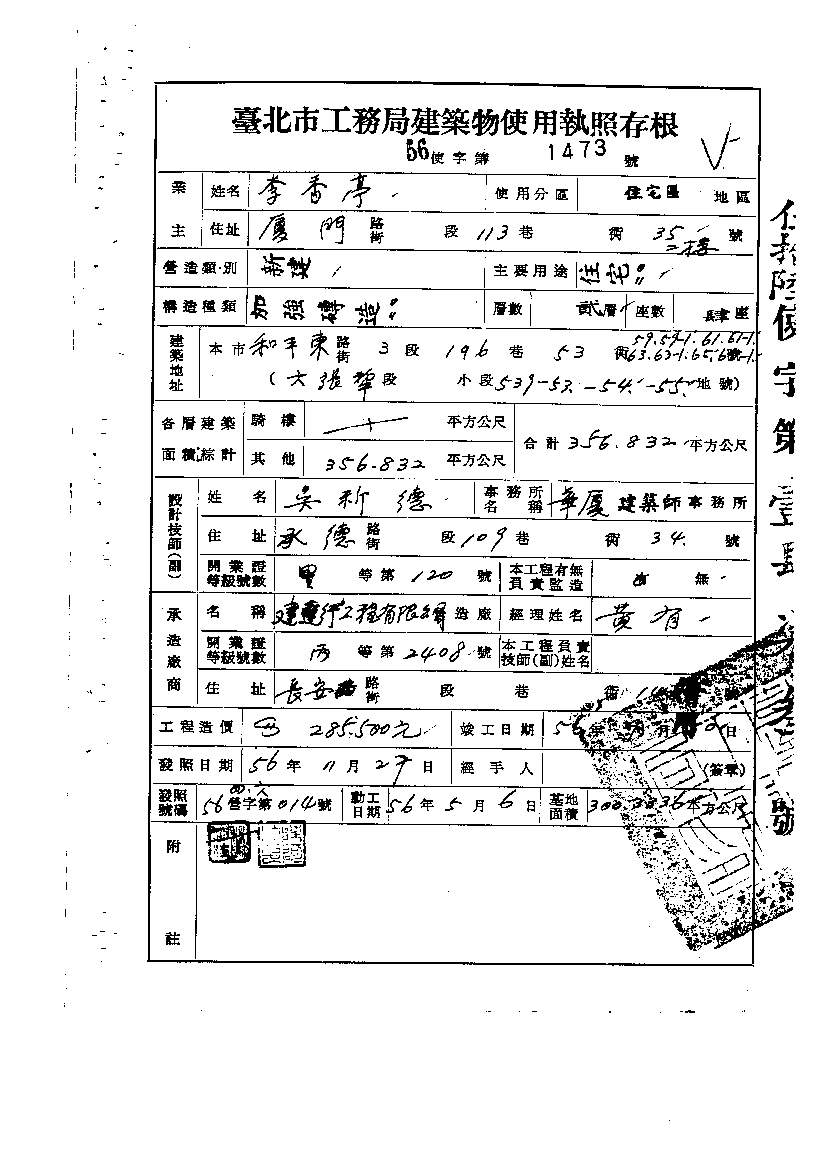 臺北市工務局建築物使用執照存根
56使字第 1473 號
業主 姓名 李香亭 使用分區 住宅區 地區
住址 厦門 路街 段 113 巷 衖 35 號 二樓
營造類別 新建 主要用途 住宅
構造種類 加強磚造 層數 貳層 座數 肆座
建築地址 本市 和平東 路街 3 段 196 巷 53 衖 59.59-1.61.61-1. 63.63-1.65.65-1. 號
(六張犂段 小段 539-53.-54.-55. 地號)
各層建築面積綜計 騎樓 平方公尺 合計 356.832 平方公尺
其他 356.832 平方公尺
設計技師(副) 姓名 吳新德 事務所名稱 華厦 建築師事務所
住址 承德 路街 段 109 巷 衖 34. 號
開業證等級號數 甲 等第 120 號 本工程有無負責監造 有 無
承造廠商 名稱 工程有限公司 造廠 經理姓名 黃有
開業證等級號數 丙 等第 2408 號 本工程負責技師(副)姓名
住址 長安西 路街 段 巷 衖 號
工程造價 285.500元 竣工日期 56年 月 日
發照日期 56年 11月 27日 經手人 (簽章)
發照號碼 56 營字第 014號 動工日期 56年 5月 6日 基地面積 平方公尺
附註
伍拾陸使字第壹 號